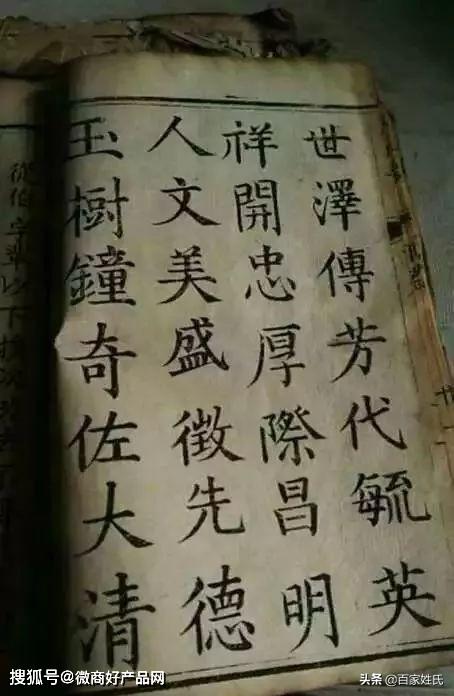 世澤傳芳代毓英
祥開忠厚際昌明
人文美盛徵先德
玉樹鐘奇佐大清
從伯字輩以下
搜狐号@微商好产品网
头条 @百家姓氏